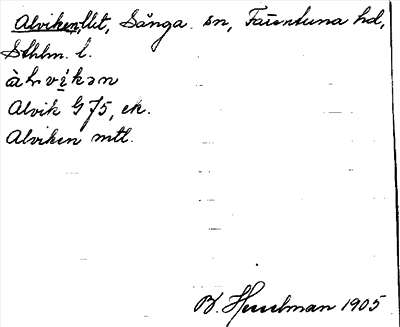 Alviken, lht, Sånga sn, Färentuna hd,
Sthlm. l.
àlvíkən
Alvik G 75, ek.
Alviken mtl.
B. Hesselman 1905